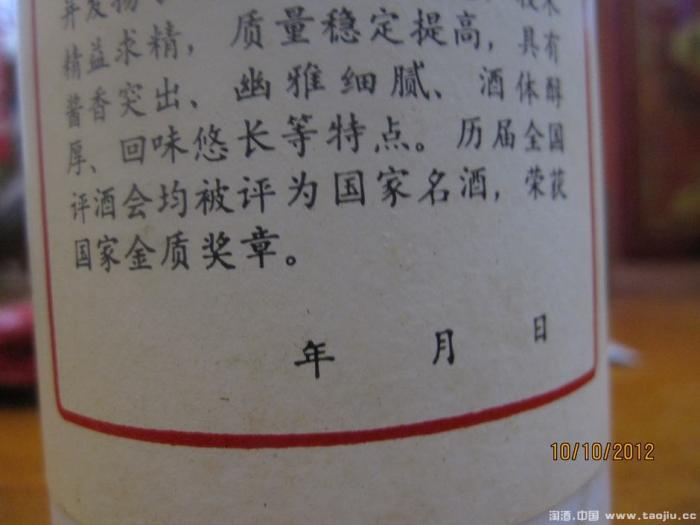 并发扬
精益求精，质量稳定提高，具有
酱香突出、幽雅细腻、酒体醇
厚、回味悠长等特点。历届全国
评酒会均被评为国家名酒，荣获
国家金质奖章。
年 月 日
10/10/2012
淘酒.中国 www.taojiu.cc